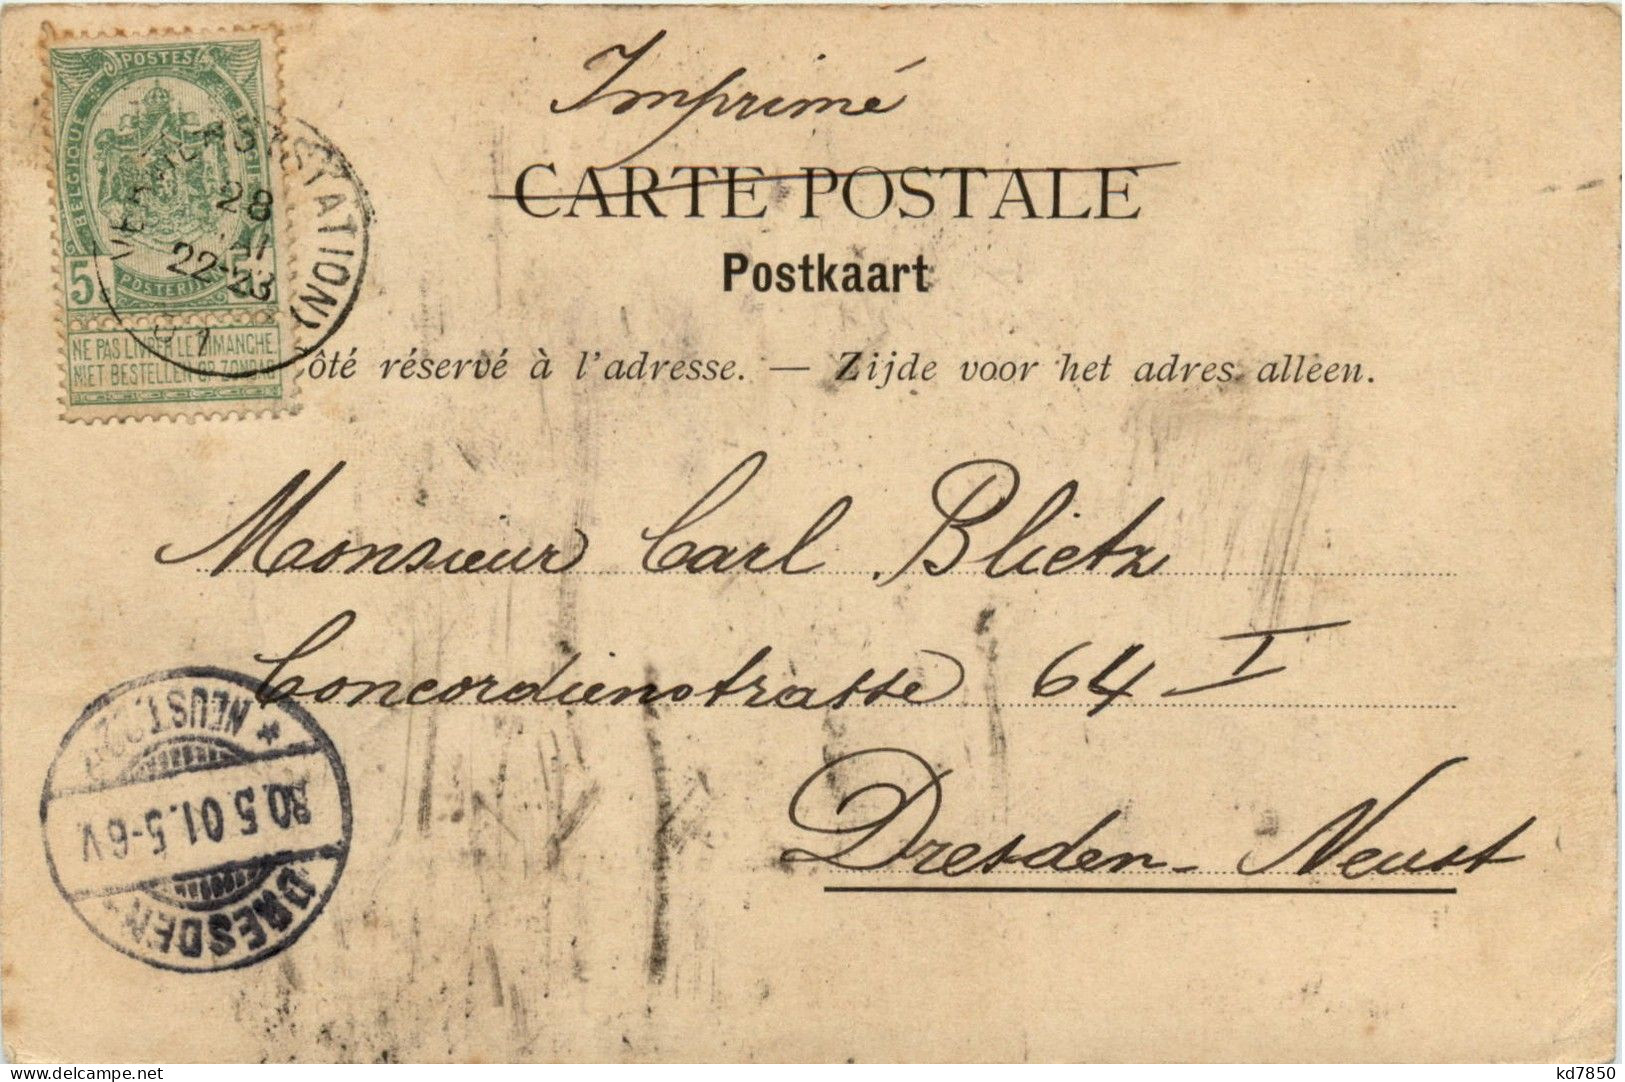 POSTES
Imprimé
BELGIQUE
VERVIERS (STATION)
28
22-23
CARTE POSTALE
Postkaart
5 5
POSTERIJEN
NE PAS LIVRER LE DIMANCHE
NIET BESTELLEN OP ZONDAG
ôté réservé à l'adresse. — Zijde voor het adres alleen.
Monsieur Carl Blietz
Concordienstrasse 64 I
Dresden-Neust
* NEUST.
30.5.01.5-6V.
DRESDEN
delcampe.net
kd7850